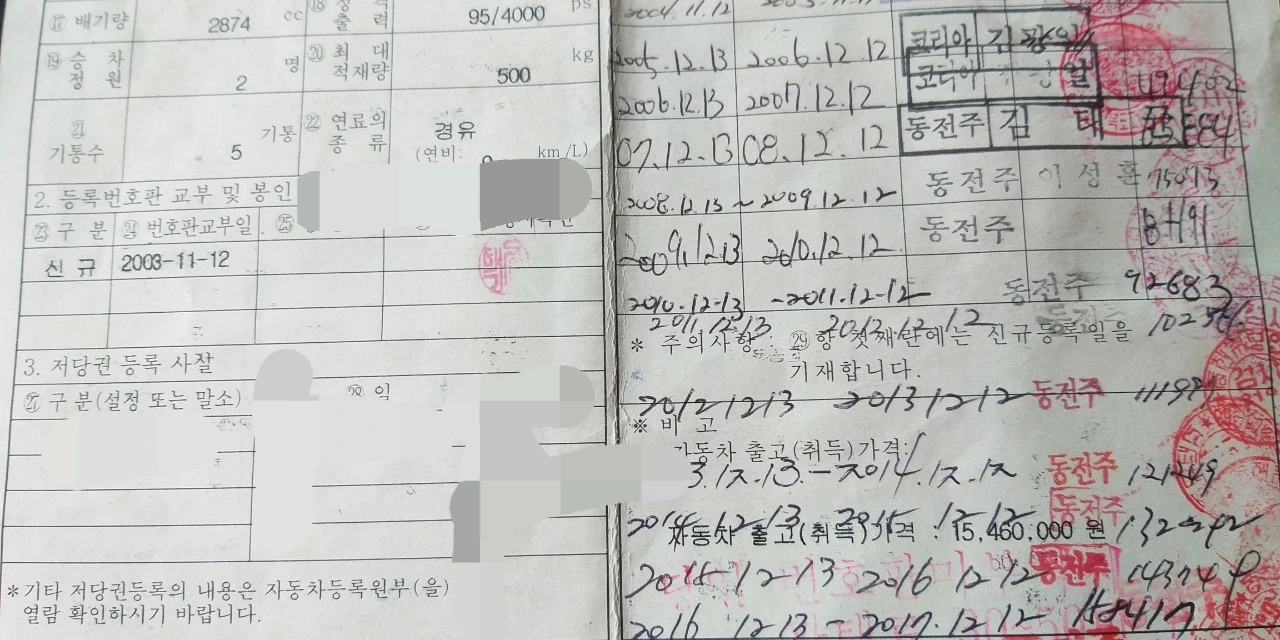 ⑰ 배기량 2874 cc
출 력 95/4000 ps
⑲ 승 차 정 원 2 명
⑳ 최 대 적재량 500 kg
㉑ 기통수 5 기통
㉒ 연료의 종 류 경유
(연비: km/L)
2. 등록번호판 교부 및 봉인
㉓ 구 분 ㉔ 번호판교부일 ㉕
신 규 2003-11-12
3. 저당권 등록 사잘
㉗ 구 분(설정 또는 말소) 익
*기타 저당권등록의 내용은 자동차등록원부(을)
열람 확인하시기 바랍니다.
2004.11.12
2005.12.13 2006.12.12 코리아 김
2006.12.13 2007.12.12 코리아 일
07.12.13 08.12.12 동전주 김 태
2008.12.13 ~ 2009.12.12 동전주 이 성 훈 75073
2009.12.13 2010.12.12 동전주
2010.12-13 -2011.12-12 동전주 92683
2011.12.13 2012.12.12
* 주의사항: ㉙ 항 첫째 란에는 신규등록일을
기재합니다.
20121213 20131212 동전주
※ 비 고
자동차 출고(취득)가격:
3.12.13.-2014.12.12 동전주 121249
2014 12 13 2015 12 12 동전주 132242
자동차 출고(취득)가격 : 15,460,000 원
2015 12 13 2016 12 12 동전주 143749
2016 12 13 - 2017.12 12 158417